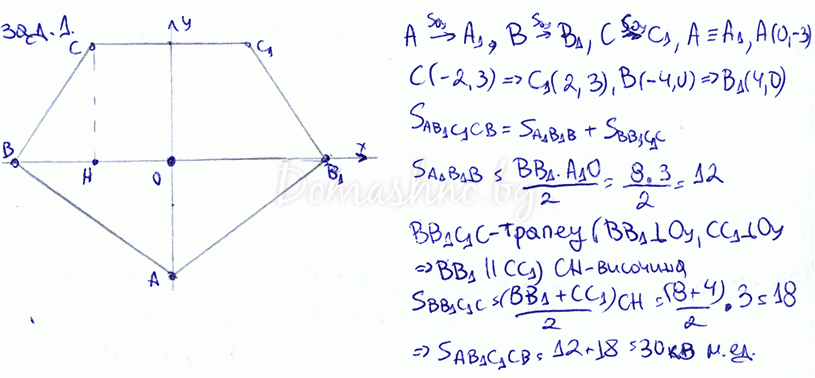 зад. 1.
y
C
C₁
B
H
O
B₁
x
A
A S₀y→ A₁, B S₀y→ B₁, C S₀y→ C₁, A ≡ A₁, A(0,-3)
C(-2,3) => C₁(2,3), B(-4,0) => B₁(4,0)
S_AB₁C₁CB = S_A₁B₁B + S_BB₁C₁C
S_A₁B₁B = BB₁.A₁O/2 = 8.3/2 = 12
BB₁C₁C-трапец (BB₁⊥Oy, CC₁⊥Oy
=> BB₁ || CC₁) CH-височина
S_BB₁C₁C = (BB₁+CC₁)/2 CH = (8+4)/2 . 3 = 18
=> S_AB₁C₁CB = 12+18 = 30 кв м.ед.
Domashno.bg